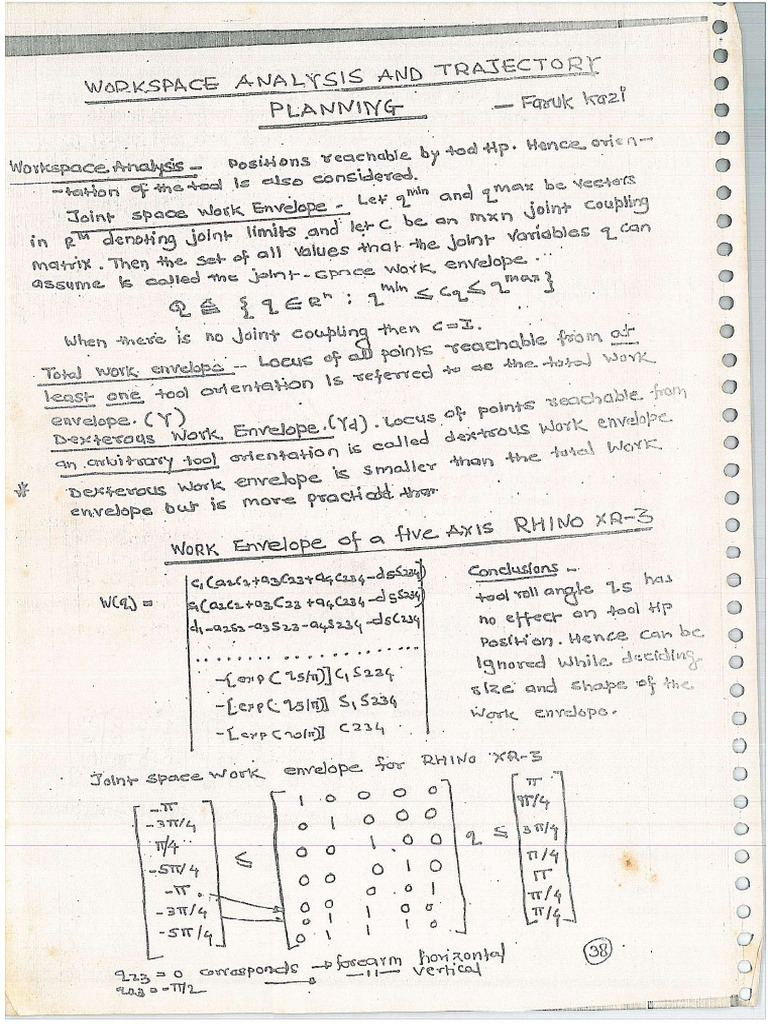 WORKSPACE ANALYSIS AND TRAJECTORY
PLANNING — Faruk Kazi
Workspace Analysis - Positions reachable by tool tip. Hence orien-
-tation of the tool is also considered.
Joint space Work Envelope - Let q^min and q^max be vectors
in R^m denoting joint limits and let C be an mxn joint coupling
matrix. Then the set of all values that the joint variables q can
assume is called the joint-space work envelope.
Q ≜ { q ∈ R^n : q^min ≤ Cq ≤ q^max }
When there is no joint coupling then C=I.
Total work envelope - Locus of all points reachable from at
least one tool orientation is referred to as the total work
envelope. (Y)
Dexterous Work Envelope. (Yd). Locus of points reachable from
an arbitrary tool orientation is called dextrous work envelope
* Dexterous work envelope is smaller than the total work
envelope but is more practical
WORK Envelope of a five Axis RHINO XR-3
W(q) =
C1(a2C2+a3C23+a4C234-d5S234)
S1(a2C2+a3C23+a4C234-d5S234)
d1-a2S2-a3S23-a4S234-d5C234
. . . . . . . . . . . . . . . . . .
-[exp(q5/π)] C1S234
-[exp(q5/π)] S1S234
-[exp(q5/π)] C234
Conclusions -
tool roll angle q5 has
no effect on tool tip
position. Hence can be
ignored while deciding
size and shape of the
work envelope.
Joint space work envelope for RHINO XR-3
-π 1 0 0 0 0 π
-3π/4 0 1 0 0 0
π/4 0 0 1 0 0 3π/4
-5π/4 ≤ 0 0 0 1 0 q ≤ π/4
-π 0 0 0 0 1 π
-3π/4 0 1 1 0 0 π/4
-5π/4 0 1 1 1 0 π/4
q23 = 0 corresponds → forearm horizontal
q23 = -π/2 → —11— vertical
38